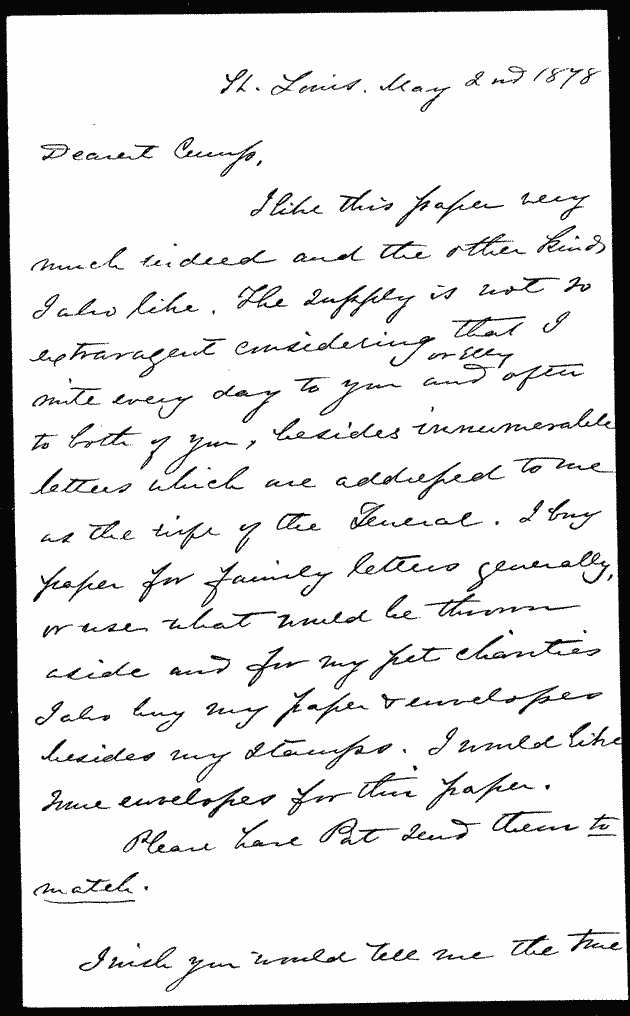 St. Louis. May 2nd 1878
Dearest Cump,
I like this paper very
much indeed and the other kinds
I also like. The supply is not so
extravagent considering that I
write every day to you or Elly and often
to both of you, besides innumerable
letters which are addressed to me
as the wife of the General. I buy
paper for family letters generally,
or use what would be thrown
aside and for my pet charities
I also buy my paper & envelopes
besides my stamps. I would like
some envelopes for this paper.
Please have Pat send them to
match.
I wish you would tell me the true